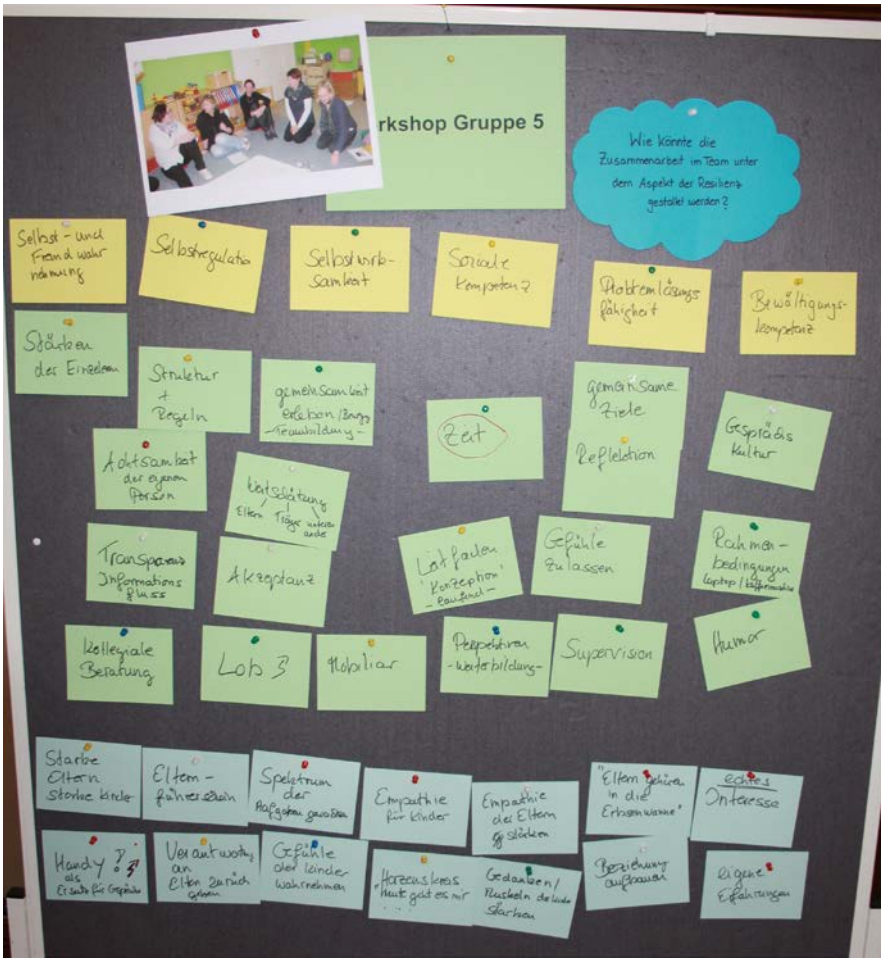 rkshop Gruppe 5
Wie könnte die
Zusammenarbeit im Team unter
dem Aspekt der Resilienz
gestaltet werden?
Selbst- und
Fremdwahr
nehmung
Selbstregulatio
Selbstwirk-
samkeit
Soziale
Kompetenz
Problemlösungs
fähigkeit
Bewältigungs-
kompetenz
Stärken
der Einzelnen
Struktur
+
Regeln
gemeinsamkeit
erleben/
-Teambildung-
Zeit
gemeinsame
Ziele
Reflektion
Gesprächs
Kultur
Achtsamkeit
der eigenen
Person
Wertschätzung
Eltern Träger unterein
ander
Transparenz
Informations
fluss
Akzeptanz
Leitfaden
'Konzeption'
-laufend-
Gefühle
zulassen
Rahmen-
bedingungen
Laptop/
Kollegiale
Beratung
Lob
Mobiliar
Perspektiven
-Weiterbildung-
Supervision
Humor
Starke
Eltern
starke Kinder
Eltern-
führerschein
Spektrum
der
Aufgaben
Empathie
für Kinder
Empathie
der Eltern
stärken
"Eltern gehören
in die
Erbsenwanne"
echtes
Interesse
Handy ?!
als
Ersatz für Gespräche
Verantwortung
an
Eltern zurück
geben
Gefühle
der Kinder
wahrnehmen
"Herzenskreis
Heute geht es mir
....
Gedanken/
Muskeln der Kinder
stärken
Beziehung
aufbauen
eigene
Erfahrungen